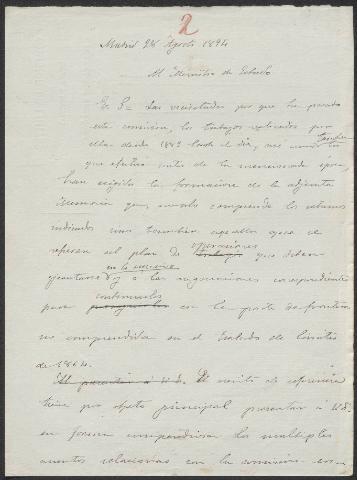 2
Madrid 28 Agosto 1894
Al Ministro de Estado
E. S. = Las vicisitudes por que ha pasado
esta comision, los trabajos realizados por
ella desde 1882 hasta el dia, asi como los
tambien
que efectuó antes de la mencionada época,
han exigido la formacion de la adjunta
Memoria que no solo comprende los
indicados sino tambien aquellos que se
refieren al plan de operaciones trabajos que deben
en lo sucesivo
ejecutarse y á las negociaciones correspondientes
para continuarlos con la parte de frontera
no comprendida en el Tratado de Limites
de 1864.
El escrito de referencia
tiene por objeto principal presentar á V.E.
en forma compendiosa los multiples
asuntos relacionados con la comision